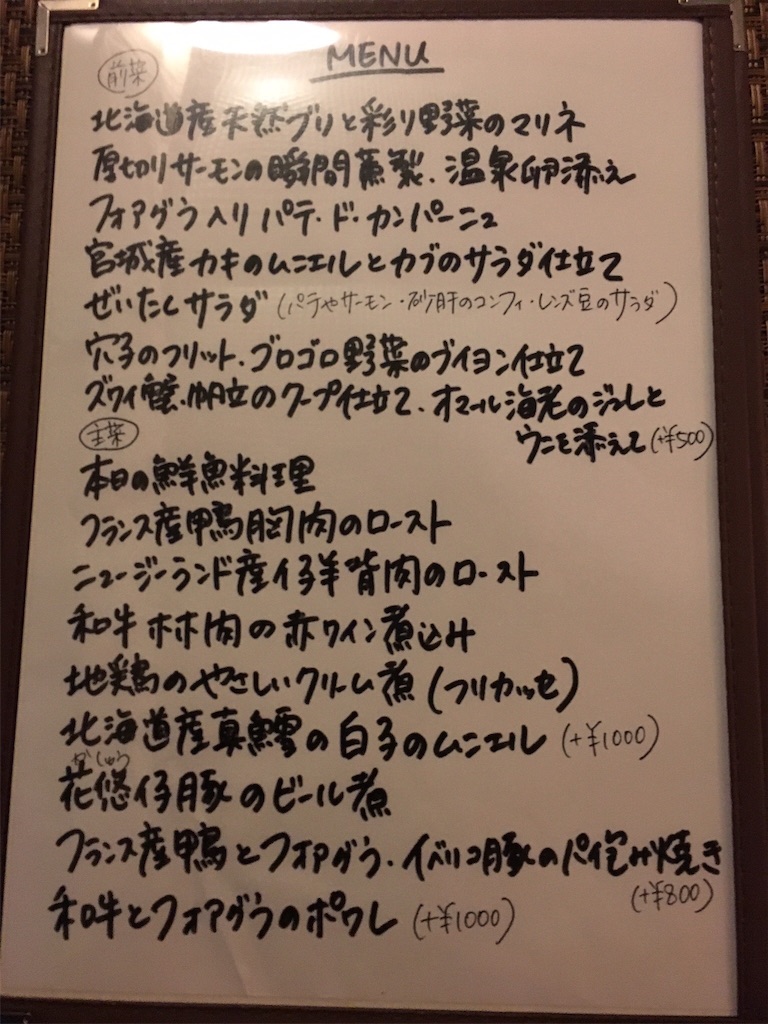 MENU
前菜
北海道産天然ブリと彩り野菜のマリネ
厚切りサーモンの瞬間薫製、温泉卵添え
フォアグラ入り パテ・ド・カンパーニュ
宮城産カキのムニエルとカブのサラダ仕立て
ぜいたくサラダ(パテやサーモン・砂肝のコンフィ・レンズ豆のサラダ)
穴子のフリット、ゴロゴロ野菜のブイヨン仕立て
ズワイ蟹、帆立のクープ仕立て、オマール海老のジュレと
ウニを添えて(+¥500)
主菜
本日の鮮魚料理
フランス産鴨胸肉のロースト
ニュージーランド産仔羊背肉のロースト
和牛ホホ肉の赤ワイン煮込み
地鶏のやさしいクリーム煮(フリカッセ)
北海道産真鱈の白子のムニエル(+¥1000)
かしゅう
花悠仔豚のビール煮
フランス産鴨とフォアグラ・イベリコ豚のパイ包み焼き
(+¥800)
和牛とフォアグラのポワレ(+¥1000)